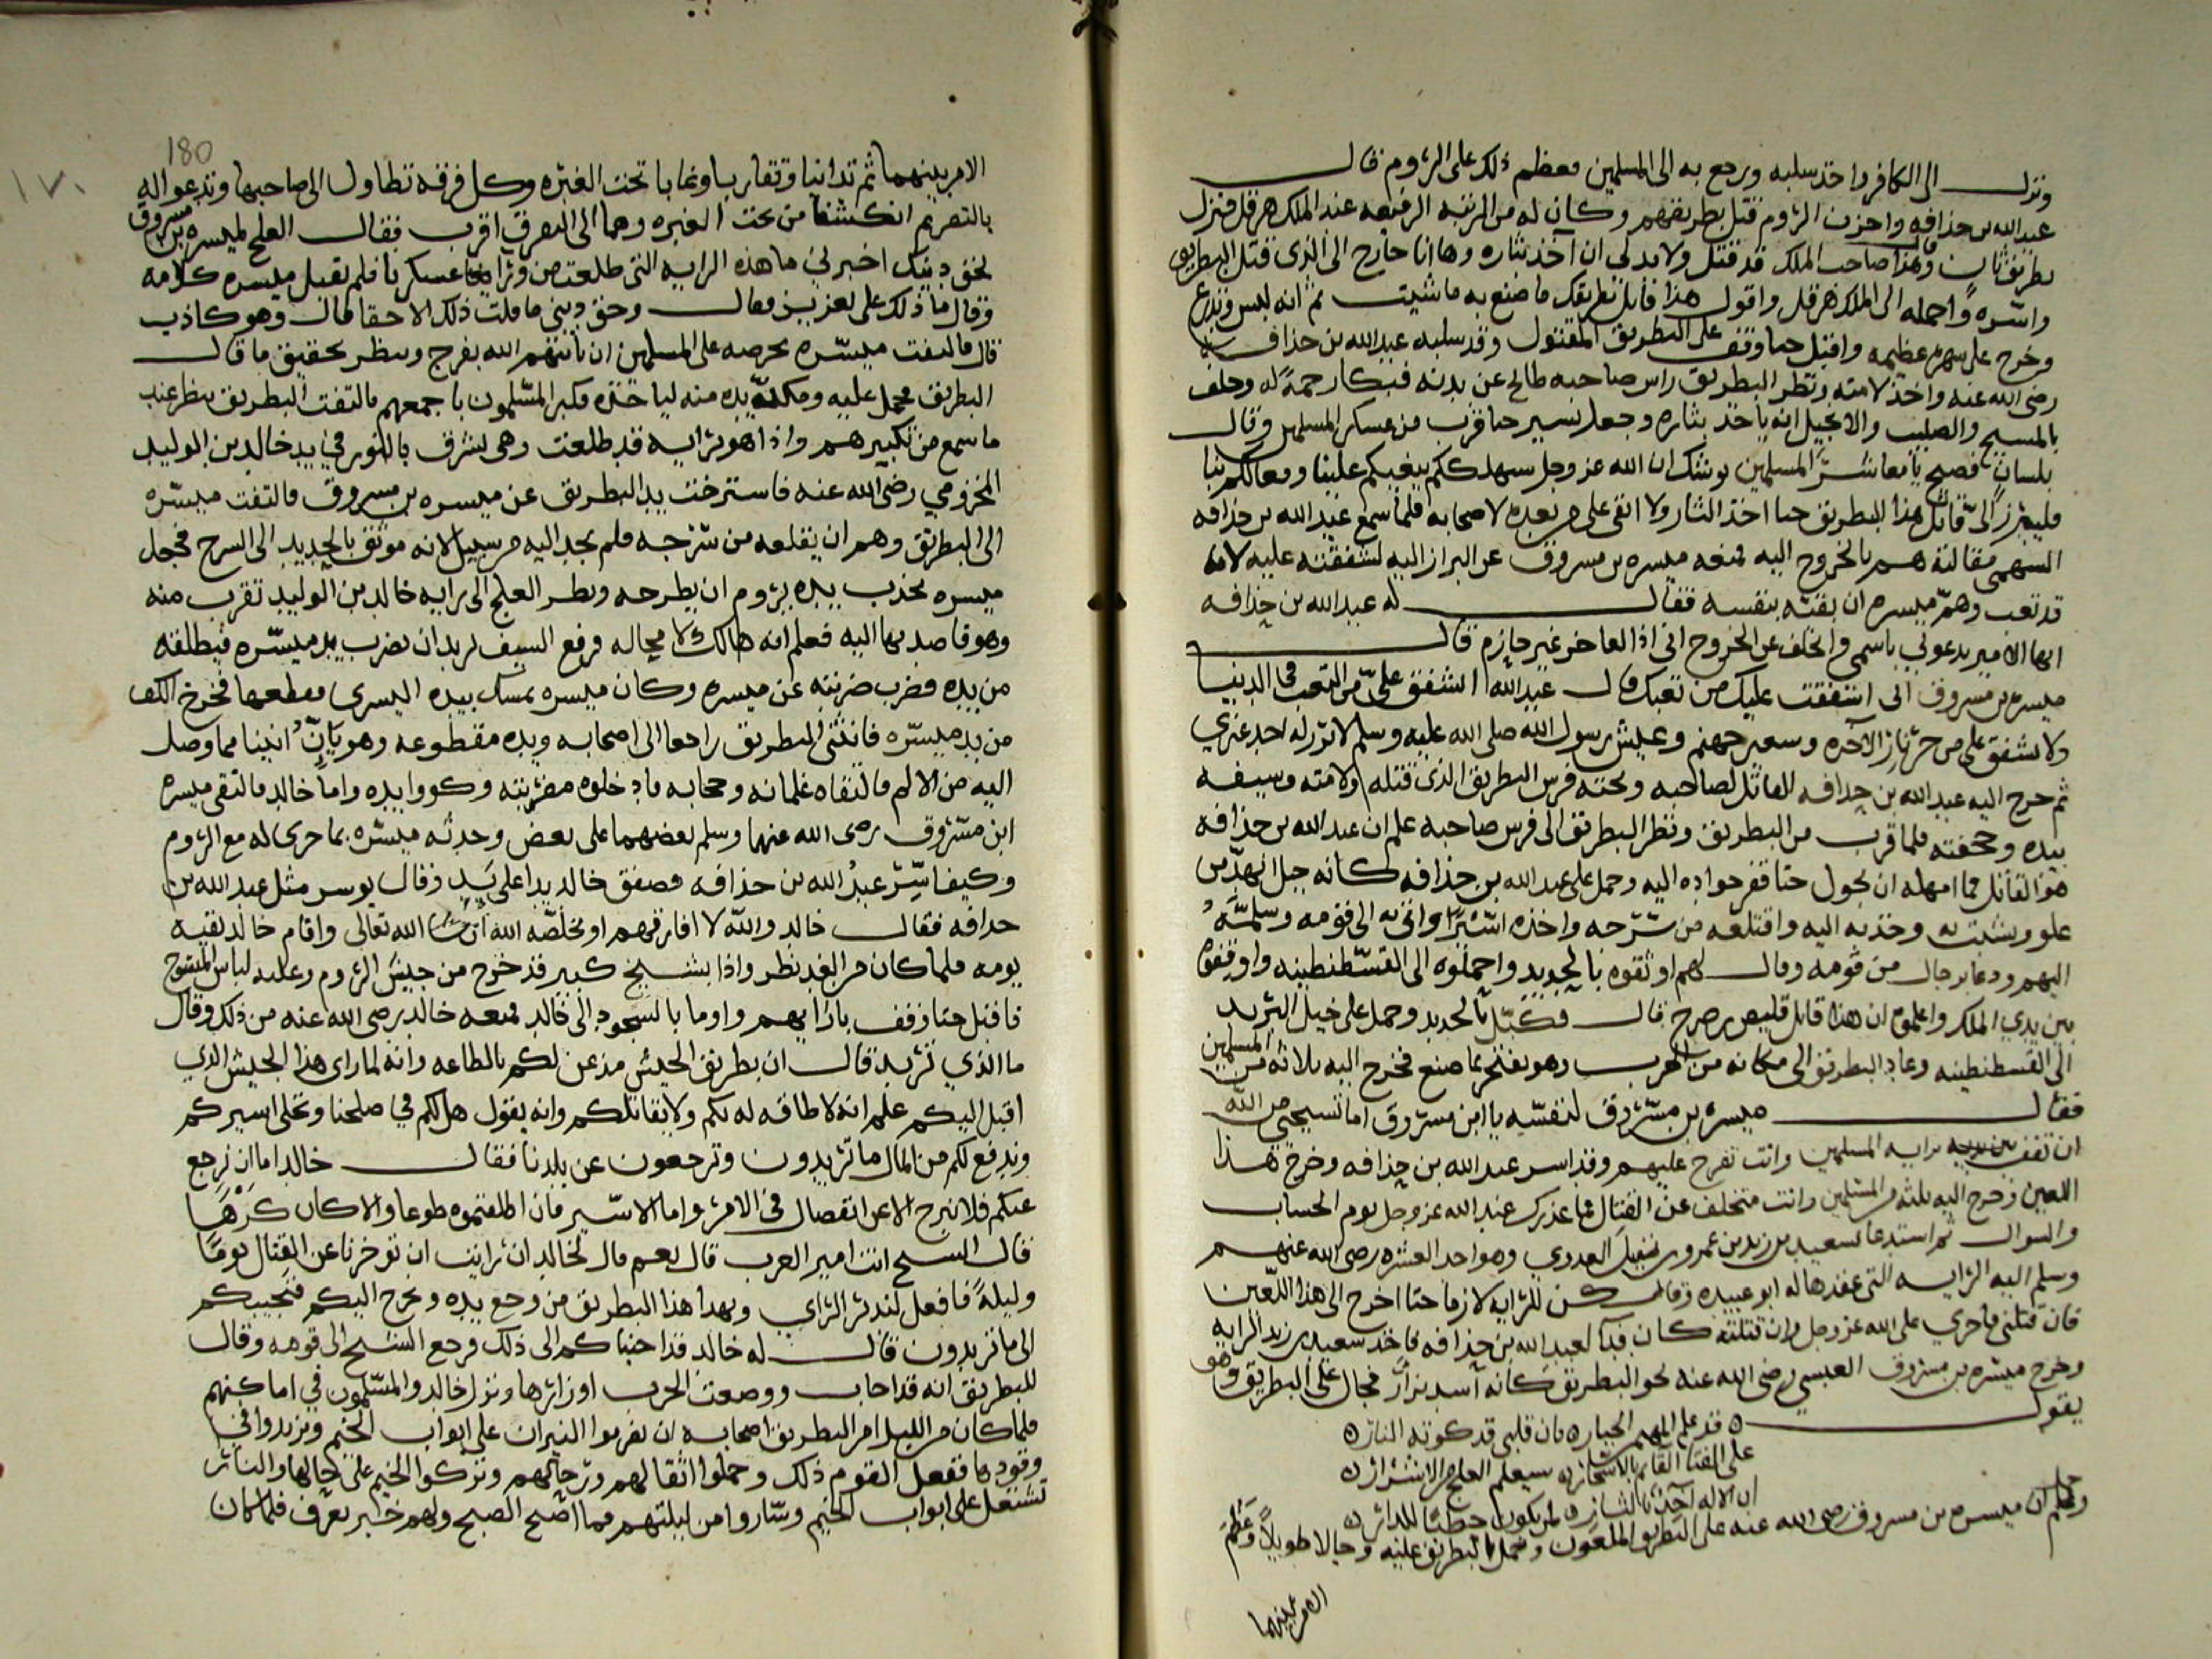 ونزل الى الكافر واخذ سلبه ورجع به الى المسلمين فعظم ذلك على الروم قال
عبد الله بن حذافه واحزن الروم قتل بطريقهم وكان له من الرتبه الرفيعه عند الملك هرقل فنزل
بطريق ثان وقال هذا صاحب الملك قد قتل ولا بد لي ان آخذ بثاره وها انا خارج الى الذي قتل البطريق
واسره واحمله الى الملك هرقل واقول هذا قاتل بطريقك فاصنع به ما شيت ثم انه لبس وتدرع
وخرج على شهري عظيمه واقبل حتا وقف على البطريق المقتول وقد سلبه عبد الله بن حذافه
رضي الله عنه واخذ لامته ونظر البطريق راس صاحبه طالح عن بدنه فبكا رحمة له وحلف
بالمسيح والصليب والانجيل انه ياخذ بثاره وجعل يسير حتا قرب من عسكر المسلمين وقال
بلسان فصيح يا معاشر المسلمين يوشك ان الله عز وجل سيهلككم ببغيكم علينا وفعالكم بنا
فليبرز الي قاتل هذا البطريق حتا اخذ الثار ولا ابقي على من بعده لاصحابه فلما سمع عبد الله بن حذافه
السهمي مقالته هم بالخروج اليه فمنعه ميسره بن مسروق عن البراز اليه لشفقته عليه لانه
قد تعب وهم ميسره ان يقيه بنفسه فقال له عبد الله بن حذافه
ايها الامير يدعوني باسمي واتخلف عن الخروج اني اذا لعاجز غير حازم قال
ميسره بن مسروق اني اشفقت عليك من تعبك قال عبد الله اتشفق علي من التعب في الدنيا
ولا تشفق علي من حر نار الآخره وسعير جهنم وعيش رسول الله صلى الله عليه وسلم لا برز له احد غيري
ثم خرج اليه عبد الله بن حذافه القاتل لصاحبه وتحته فرس البطريق الذي قتله ولامته وسيفه
بيده وحجفته فلما قرب من البطريق ونظر البطريق الى فرس صاحبه علم ان عبد الله بن حذافه
هو القاتل فما امهله ان يجول حتا قفز جواده اليه وحمل على عبد الله بن حذافه كانه جبل انهد من
علو وتشبث به وجذبه اليه واقتلعه من سرجه واخذه اسيرا واتى به الى قومه وسلمه
اليهم ودعا برجال من قومه وقال لهم اوثقوه بالحديد واحملوه الى القسطنطينيه واوقفوه
بين يدي الملك واعلموه ان هذا قاتل قليص بن صرح قال فكبل بالحديد وحمل على خيل البريد
الى القسطنطينيه وعاد البطريق الى مكانه من الحرب وهو يفتخر بما صنع فخرج اليه ثلاثه من المسلمين
فقال ميسره بن مسروق لنفسه يا ابن مسروق اما تستحي من الله
ان تقف برايه المسلمين وانت تفرج عليهم وقد اسر عبد الله بن حذافه وخرج هذا
اللعين وخرج اليه ثلثه من المسلمين وانت متخلف عن القتال فما عذرك عند الله عز وجل يوم الحساب
والسوال ثم استدعا بسعيد بن زيد بن عمرو بن نفيل العدوي وهو احد العشره رضي الله عنهم
وسلم اليه الرايه التي عقدها له ابو عبيده وقال كن للرايه لازما حتا اخرج الى هذا اللعين
فان قتلني فاجري على الله عز وجل وان قتلته كان فدآ لعبد الله بن حذافه فاخذ سعيد بن زيد الرايه
وخرج ميسره بن مسروق العبسي رضي الله عنه نحو البطريق كانه اسد يزار فجال على البطريق وهو
يقول ٥ قد علم المهيمن الجبار ٥ بان قلبي قد كوته النار ٥
على الفتا القايم بالاسحار ٥ سيعلم العلج من الاشرار ٥
ان الاله آخذ بالثار
وحمل ميسره بن مسروق رضي الله عنه على البطريق الملعون وحمل البطريق عليه وجالا طويلا وعظم
الامر بينهما
180
١٧٠
الامر بينهما ثم تدانيا وتقاربا وغابا تحت الغبره وكل فرقه تطاول الى صاحبها وتدعو اليه
بالنصر ثم انكشفا من تحت الغبره وهما الى التفرق اقرب فقال العلج لميسره بن مسروق
بحق دينك اخبرني ما هذه الرايه التي طلعت من ورا عسكرنا فلم يقبل ميسره كلامه
وقال ما ذلك على الله بعزيز فقال وحق ديني ما قلت ذلك الا حقا قال وهو كاذب
قال فالتفت ميسره بحرصه على المسلمين ان ياتيهم الله بفرج وينظر تحقيق ما قال
البطريق فحمل عليه ومكن يده منه لياخذه فكبر المسلمون باجمعهم فالتفت البطريق ينظر عند
ما سمع من تكبيرهم واذا هو برايه قد طلعت وهي تشرق بالنور في يد خالد بن الوليد
المخزومي رضي الله عنه فاسترخت يد البطريق عن ميسره بن مسروق فالتفت ميسره
الى البطريق وهم ان يقلعه من سرجه فلم يجد اليه من سبيل لانه موثق بالحديد الى السرج فجعل
ميسره يجذب بيده يروم ان يطرحه ونظر العلج الى رايه خالد بن الوليد تقرب منه
وهو قاصد بها اليه فعلم انه هالك لا محاله فرفع السيف يريد ان يضرب يد ميسره فيطلقه
من يده فضرب ضربته عن ميسره وكان ميسره يمسك بيده اليسرى فقطعها فخرج الكف
من يد ميسره فانثنى البطريق راجعا الى اصحابه ويده مقطوعه وهو يان انينا مما وصل
اليه من الالم فالتقاه غلمانه وحجابه فادخلوه مضربته وكووا يده واما خالد فالتقى ميسره
ابن مسروق رضي الله عنهما وسلم بعضهما على بعض وحدثه ميسره بما جرى له مع الروم
وكيف اسر عبد الله بن حذافه فصفق خالد يدا على يد وقال يوسر مثل عبد الله بن
حذافه فقال خالد والله لا افارقهم او نخلصه الله ان شا الله تعالى واقام خالد بقيه
يومه فلما كان من الغد نظر واذا بشيخ كبير قد خرج من جيش الروم وعليه لباس المسوح
فاقبل حتا وقف بازايهم واوما بالسجود الى خالد فمنعه خالد رضي الله عنه من ذلك وقال
ما الذي تريد قال ان بطريق الجيش مذعن لكم بالطاعه وانه لما راى هذا الجيش الذي
اقبل اليكم علم انه لا طاقه له بكم ولا يقاتلكم وانه يقول هل لكم في صلحنا ونخلي اسيركم
وندفع لكم من المال ما تريدون وترجعون عن بلدنا فقال خالد اما ان نرجع
عنكم فلا نبرح الا عن انفصال في الامر واما الاسير فان اطلقتموه طوعا والا كان كرها
قال الشيخ انت امير العرب قال نعم قال لخالد ان رايت ان توخرنا عن القتال يوما
وليلة فافعل لندبر الراي ويهدا هذا البطريق من وجع يده ونخرج اليكم فنجيبكم
الى ما تريدون قال له خالد قد اجبناكم الى ذلك فرجع الشيخ الى قومه وقال
للبطريق انه قد اجاب ووضعت الحرب اوزارها ونزل خالد والمسلمون في اماكنهم
فلما كان من الليل امر البطريق اصحابه ان يضرموا النيران على ابواب الخيم ويزيدوا في
وقودها ففعل القوم ذلك وحملوا اثقالهم ورحالهم وتركوا الخيم على حالها والنار
تشتعل على ابواب الخيم وساروا من ليلتهم فما اصبح الصبح ولهم خبر يعرف فلما كان